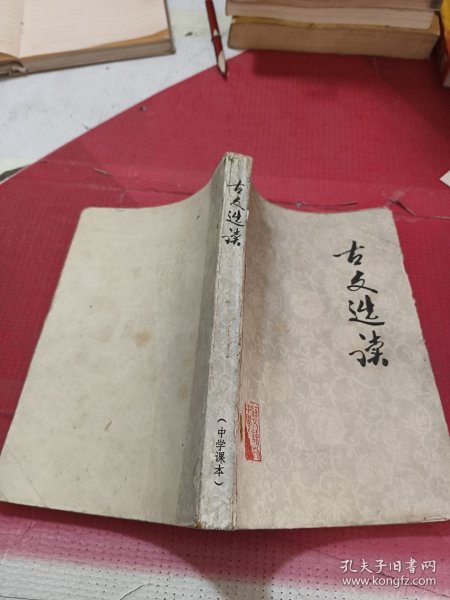 古文选读
(中学课本)
古文选读
孔夫子旧书网
www.kongfz.com